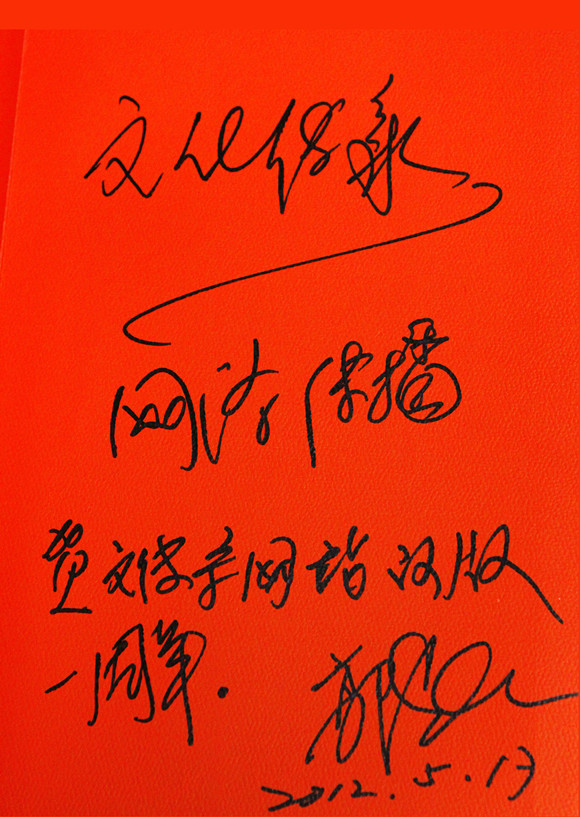 文化传承
网络传播
贺文传系网站改版
一周年.
2012.5.13